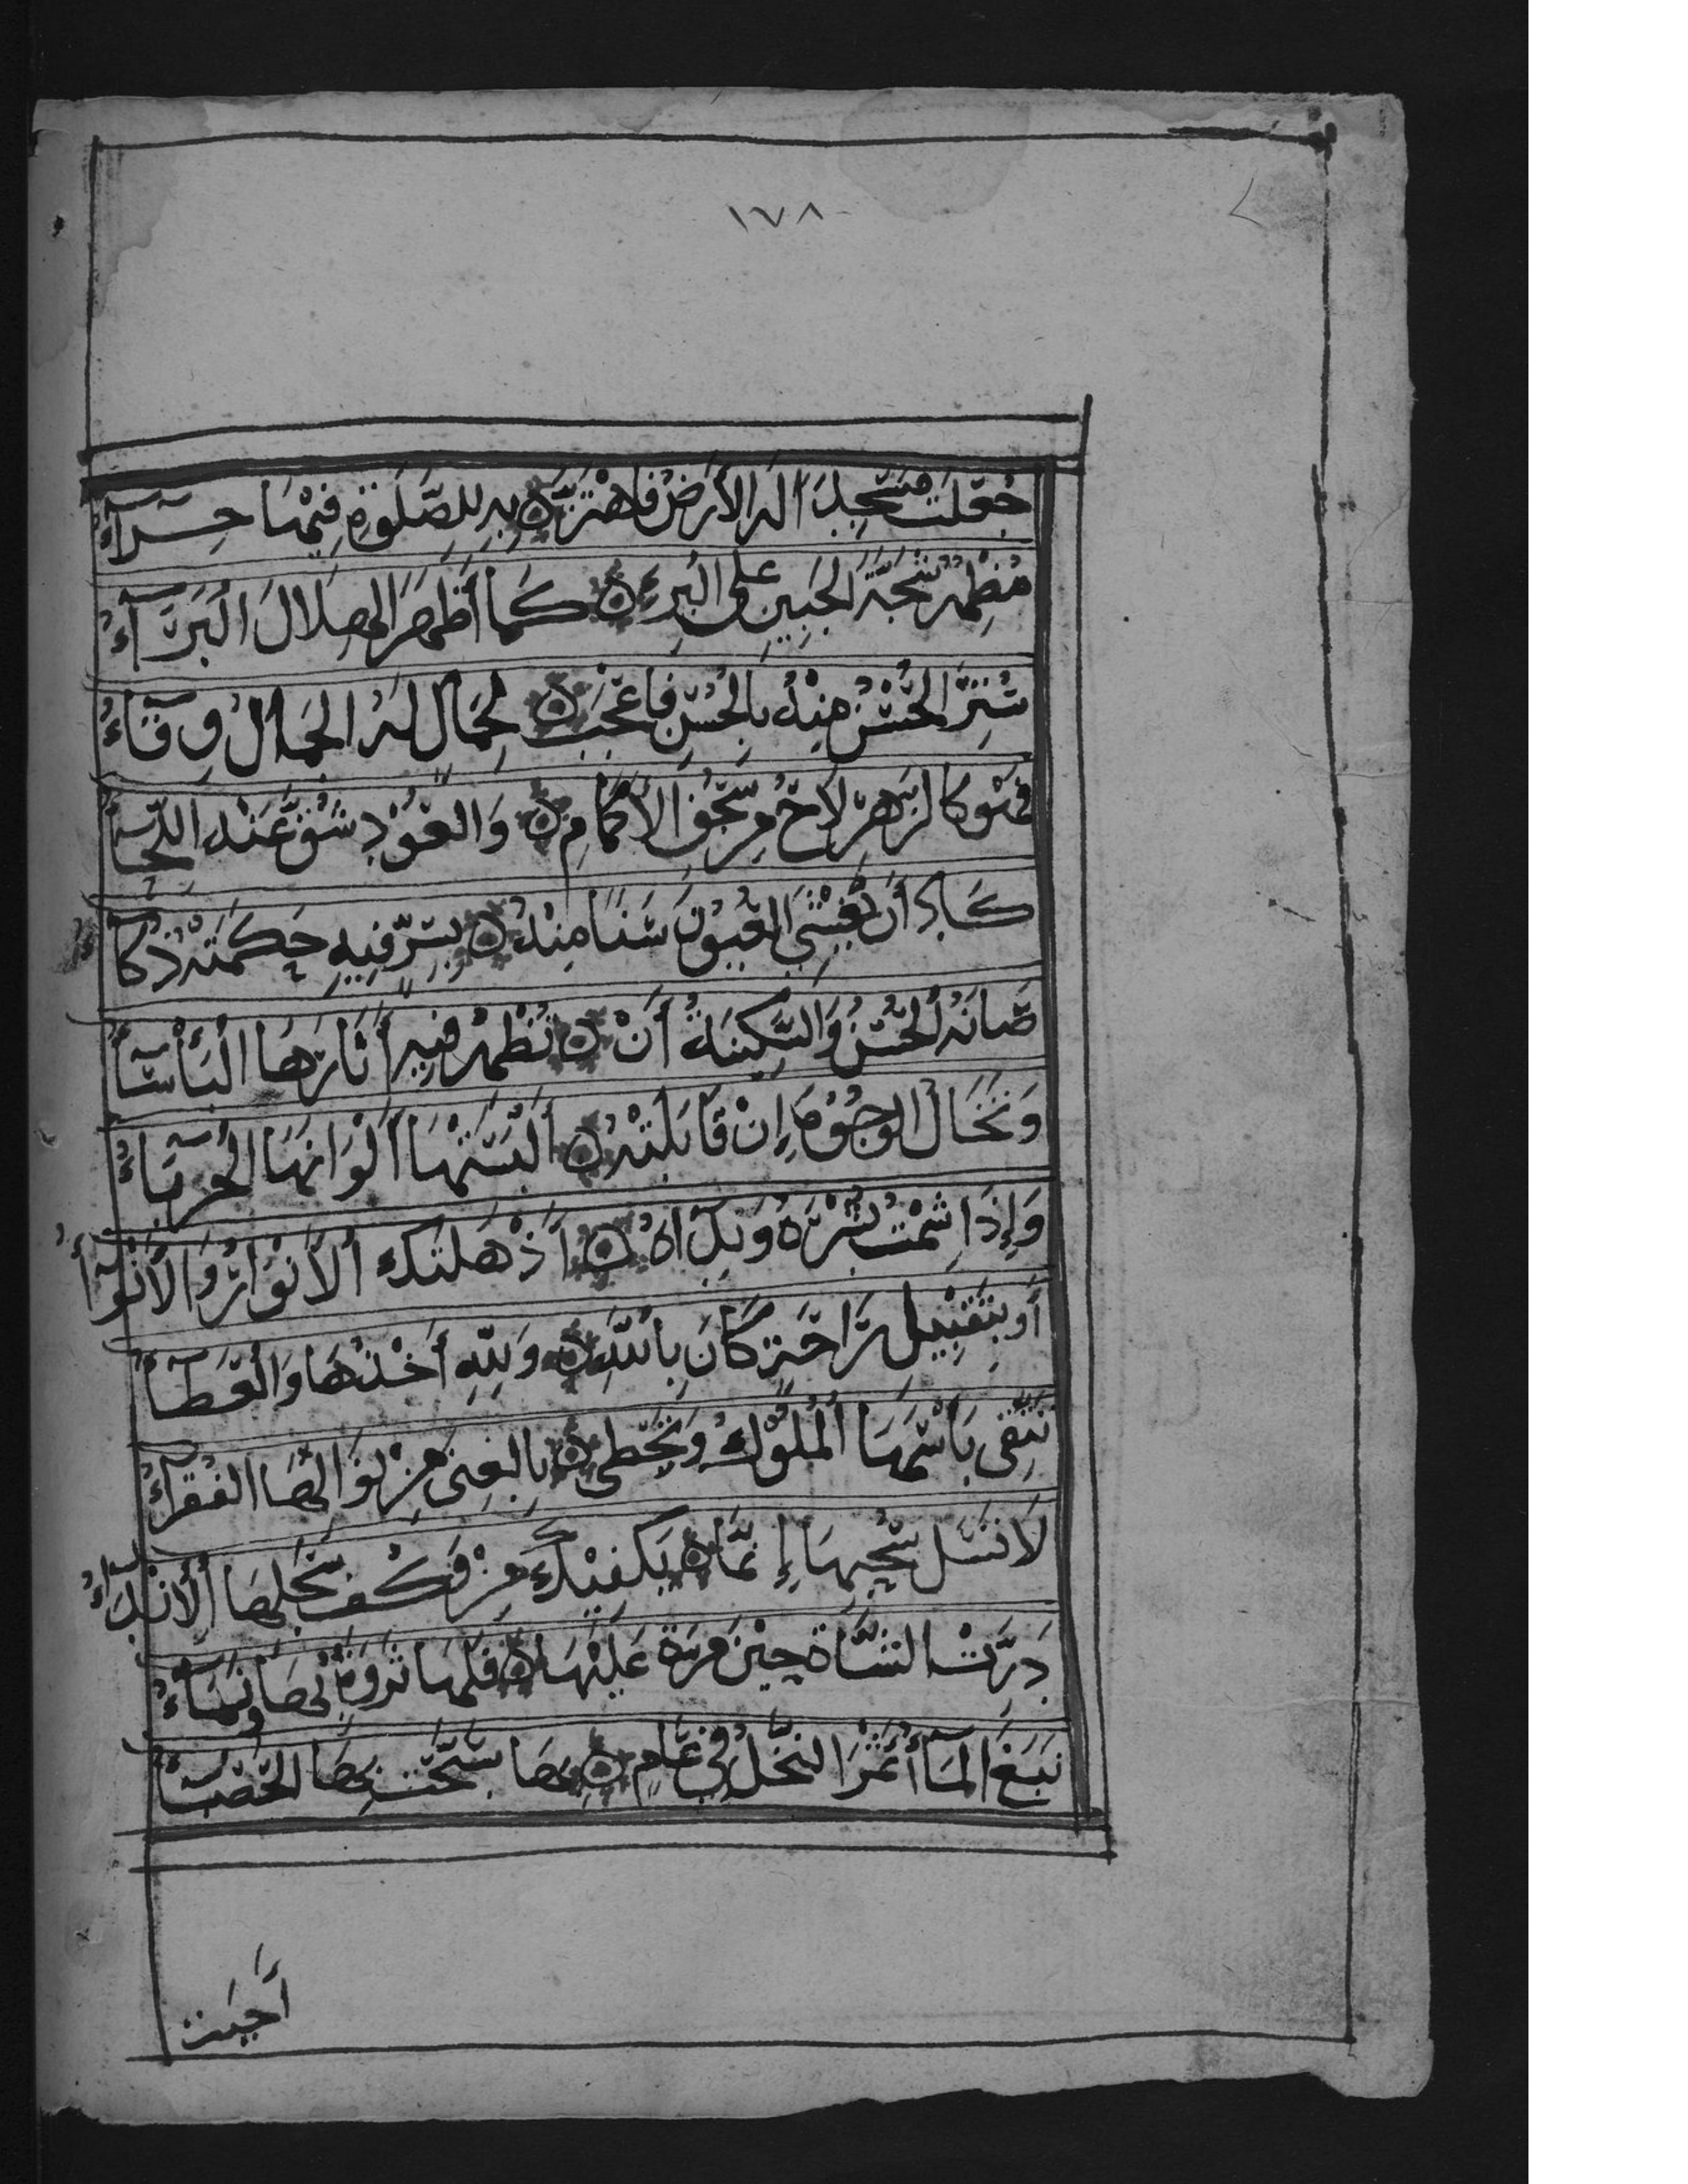 ١٧٨
جُعِلَتْ مَسْجِدًا لَهُ الْأَرْضُ فَاهْتَزَّ ۞ بِهِ لِلصَّلَوةِ فِيْهَا حِرَآءُ
مُظْهِرٌ شَجَّةَ الْجَبِينِ عَلَى الْبُرْءِ ۞ كَمَا أَظْهَرَ الْهِلَالَ الْبَرَآءُ
سُتِرَ الْحُسْنُ مِنْهُ بِالْحُسْنِ فَاعْجَبْ ۞ لِجَمَالٍ لَهُ الْجَمَالُ وِقَآءُ
فَهُوَ كَالزَّهْرِ لَاحَ مِنْ سَجْفِ الْأَكْمَامِ ۞ وَالْعُوْدِ شُقَّ عَنْهُ اللِّحَآءُ
كَادَ أَنْ يُغْشِيَ الْعُيُوْنَ سَنًا مِنْهُ ۞ بِسِرٍّ فِيهِ حَكَمَتْهُ ذُكَاءُ
صَانَهُ الْحُسْنُ وَالسَّكِينَةُ أَنْ ۞ تُظْهِرَ فِيهِ أَثَارَهَا الْبَأْسَآءُ
وَتَخَالُ الْوُجُوْهَ إِنْ قَابَلَتْهُ ۞ أَلْبَسَتْهَا أَلْوَانَهَا الْحِرْبَآءُ
وَإِذَا شِمْتَ بِشْرَهُ وَنَدَاهُ ۞ أَذْهَلَتْكَ الْأَنْوَارُ وَالْأَنْوَآءُ
أَوْ بِتَقْبِيْلِ رَاحَةٍ كَانَ بِاللّٰهِ ۞ وَلِلّٰهِ أَخْذُهَا وَالْعَطَآءُ
تَتَّقِى بَأْسَهَا الْمُلُوْكُ وَتَحْظَى ۞ بِالْغِنَى مِنْ نَوَالِهَا الْفُقَرَآءُ
لَا تَسَلْ سَيْلَ جُوْدِهَا إِنَّمَا ۞ يَكْفِيْكَ مِنْ وَكْفِ سُحْبِهَا الْأَنْدَآءُ
دَرَّتِ الشَّاةُ حِيْنَ مَرَّتْ عَلَيْهَا ۞ فَلَهَا ثَرْوَةٌ بِهَا وَنَمَآءُ
نَبَعَ الْمَآءُ أَثْمَرَ النَّخْلُ فِي عَامٍ ۞ بِهَا سَبَّحَتْ بِهَا الْحَصْبَآءُ
أَحْيَتْ